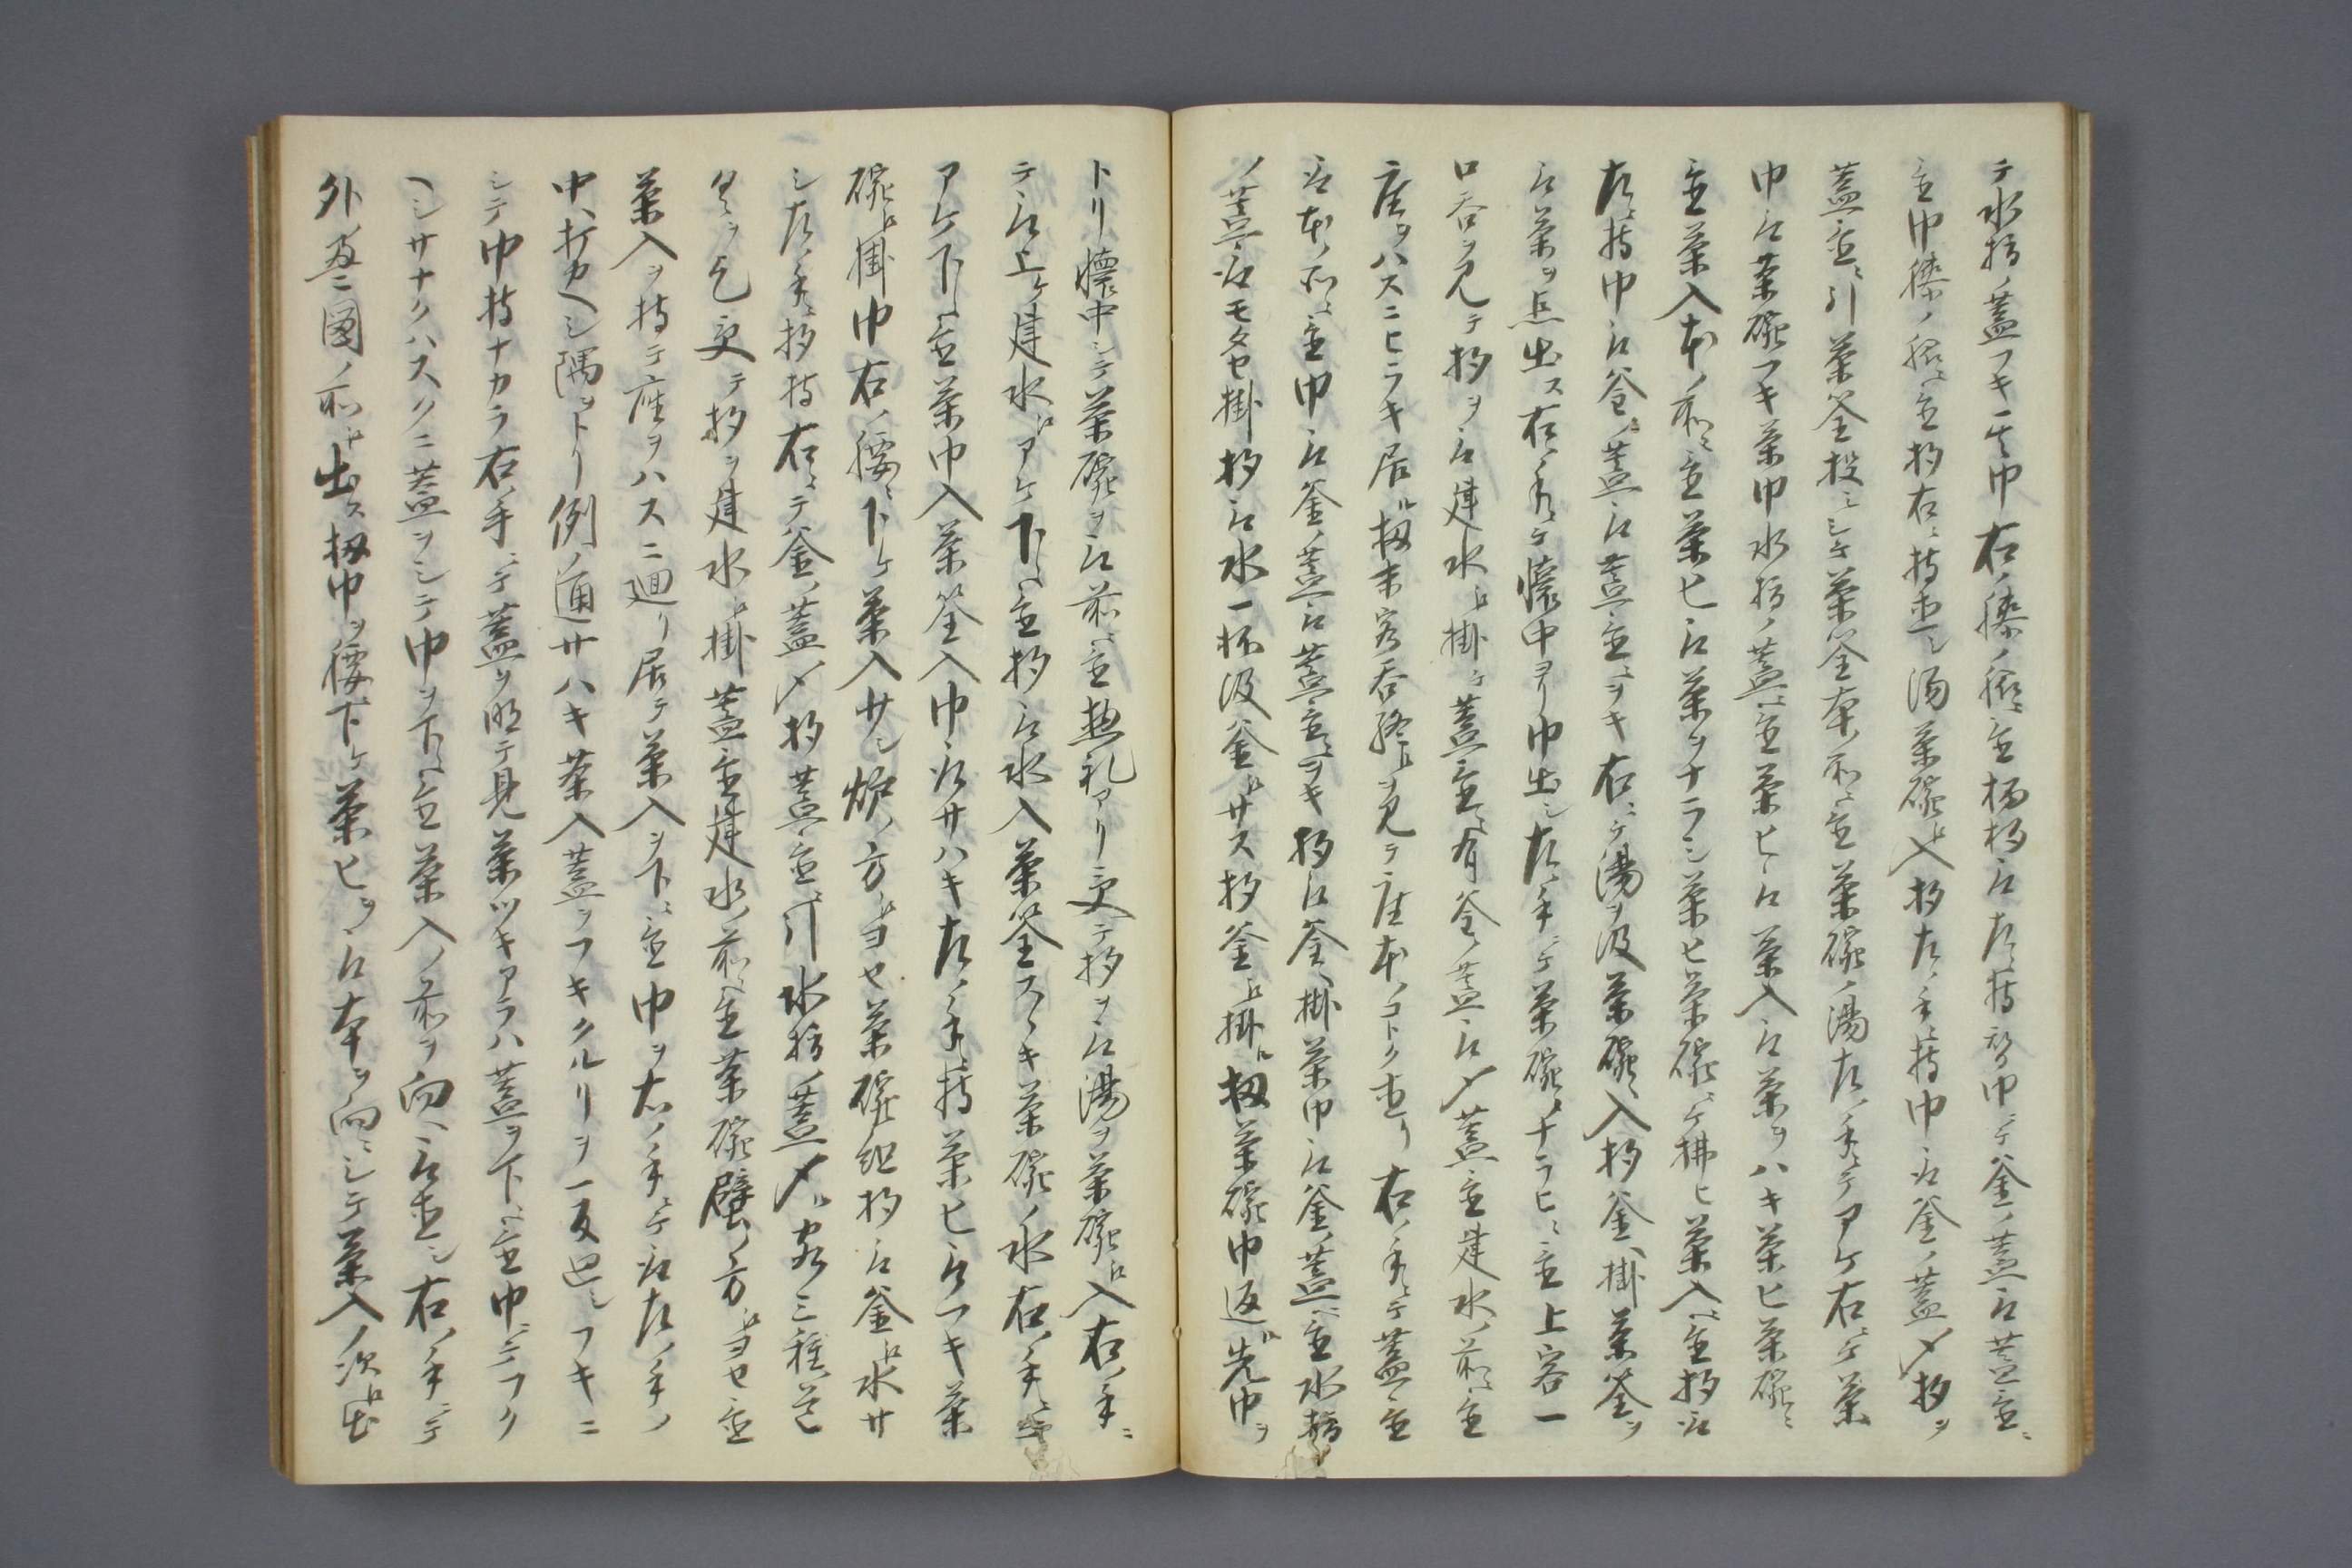 テ水指ノ蓋フキ巾右ノ膝ノ脇ニ置柄杓取左ニ持帋巾ニテ釜ノ蓋取蓋置ニ
置巾膝ノ脇ニ置杓右ニ持直シ湯茶碗ヘ入杓左ノ手ニ持巾取釜ノ蓋〆杓ヲ
蓋置ニ引茶筌投シテ茶筌本ノ所ニ置茶碗ノ湯左ノ手ニテアケ右ニテ茶
巾取茶碗フキ茶巾水指ノ蓋ニ置茶ヒ取茶入取茶ヲハキ茶ヒ茶碗ニ
置茶入本ノ所ニ置茶ヒ取茶ヲナラシ茶ヒ茶碗ニテ拂ヒ茶入ニ置杓取
左ニ持巾取釜ノ蓋取蓋置ニヲキ右ニテ湯ヲ汲茶碗ヘ入杓釜ヘ掛茶筌ヲ
取茶ヲ点出ス右ノ手ニテ懐中ヨリ巾出シ左ノ手ニテ茶碗ノナラヒニ置上客一
口呑ヲ見テ杓ヲ取建水ヘ掛テ蓋置ニ有釜ノ蓋取〆蓋置建水ノ前ニ置
座ヲハスニヒラキ居ル扨末客呑終ヲ見テ座本ノコトク直リ右ノ手ニテ蓋置
取本ノ所ニ置巾取釜ノ蓋取蓋置ニヲキ杓取釜ヘ掛茶巾取釜ノ蓋ニ置水指
ノ蓋取モタセ掛杓取水一杯汲釜ヘサス杓釜ヘ掛ル扨茶碗巾返ル先巾ヲ
トリ懐中シテ茶碗ヲ取前ニ置惣礼アリ更テ杓ヲ取湯ヲ茶碗ヘ入右ノ手ニ
テ取上ケ建水ヘアケ下ニ置杓取水入茶筌スヽキ茶碗ノ水右ノ手ニテ
アケ下ニ置茶巾入茶筌入巾取サハキ左ノ手ニ持茶ヒ取フキ茶
碗ヘ掛巾右ノ腰ニ下ケ茶入サシ炉ノ方ヘヨセ茶碗組杓取釜ヘ水サ
シ左ノ手ニ杓持右ニテ釜ノ蓋〆杓蓋置ニ引水指ノ蓋〆ル客三種芒
見ヲ乞更テ杓ヲ建水ヘ掛蓋置建水ノ前ニ置茶碗壁ノ方ヘヨセ置
茶入ヲ持テ座ヲハスニ廻リ居テ茶入ヲ下ニ置巾ヲ右ノ手ニテ取左ノ手ノ
中ヘ打カヘシ隅ヲトリ例ノ通サハキ茶入蓋ヲフキクルリヲ一反廻シフキニ
シテ巾持ナカラ右ノ手ニテ蓋ヲ明テ見茶ツキアラハ蓋ヲ下ニ置巾ニテフク
ヘシサナクハスクニ蓋ヲシテ巾ヲ下ニ置茶入ノ前ヲ向ヘ取直シ右ノ手ニテ
外ノ図ノ所ヘ出ス扨巾ヲ腰ニ下ケ茶ヒヲ取本ヲ向ニシテ茶入ノ次ヘ出